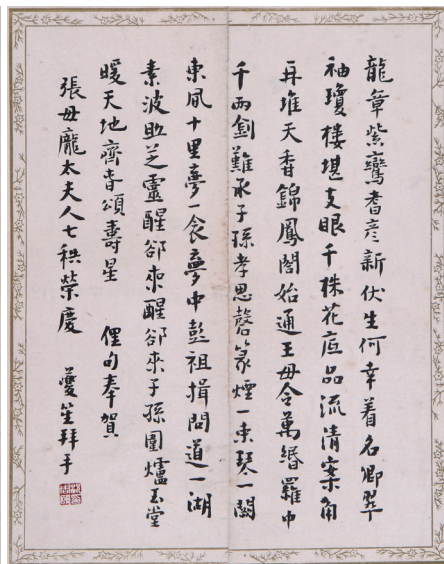 龍章紫鸞耆彥新伏生何幸着名卿翠
袖瓊樓堪支眼千株花店品流清案角
再堆天香錦鳳閣始通王母令萬緡羅中
千兩劍難承子孫孝思罄篆煙一束琴一闋
東風十里夢一食夢中彭祖揖問道一湖
素波助芝靈醒卻來醒卻來子孫圍爐玉堂
暖天地齊春頌壽星 俚句奉賀
張母龐太夫人七秩榮慶 夔笙拜手